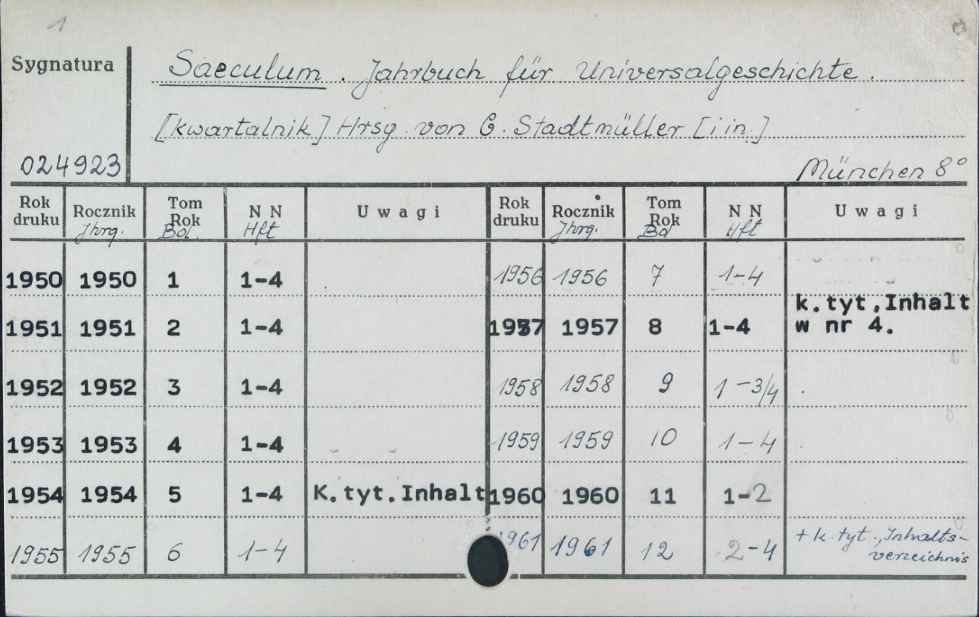 1
Sygnatura
Saeculum. Jahrbuch für Universalgeschichte.
[kwartalnik] Hrsg. von G. Stadtmüller [i in.]
024923
München 8°
Rok druku Rocznik Jhrg. Tom Rok Bd. N N Hft Uwagi Rok druku Rocznik Jhrg. Tom Rok Bd N N Hft Uwagi
1950 1950 1 1-4 1956 1956 7 1-4
1951 1951 2 1-4 1957 1957 8 1-4 k.tyt,Inhalt w nr 4.
1952 1952 3 1-4 1958 1958 9 1-3/4
1953 1953 4 1-4 1959 1959 10 1-4
1954 1954 5 1-4 K.tyt.Inhalt 1960 1960 11 1-2
1955 1955 6 1-4 1961 1961 12 2-4 + k tyt., Inhalts-
verzeichnis